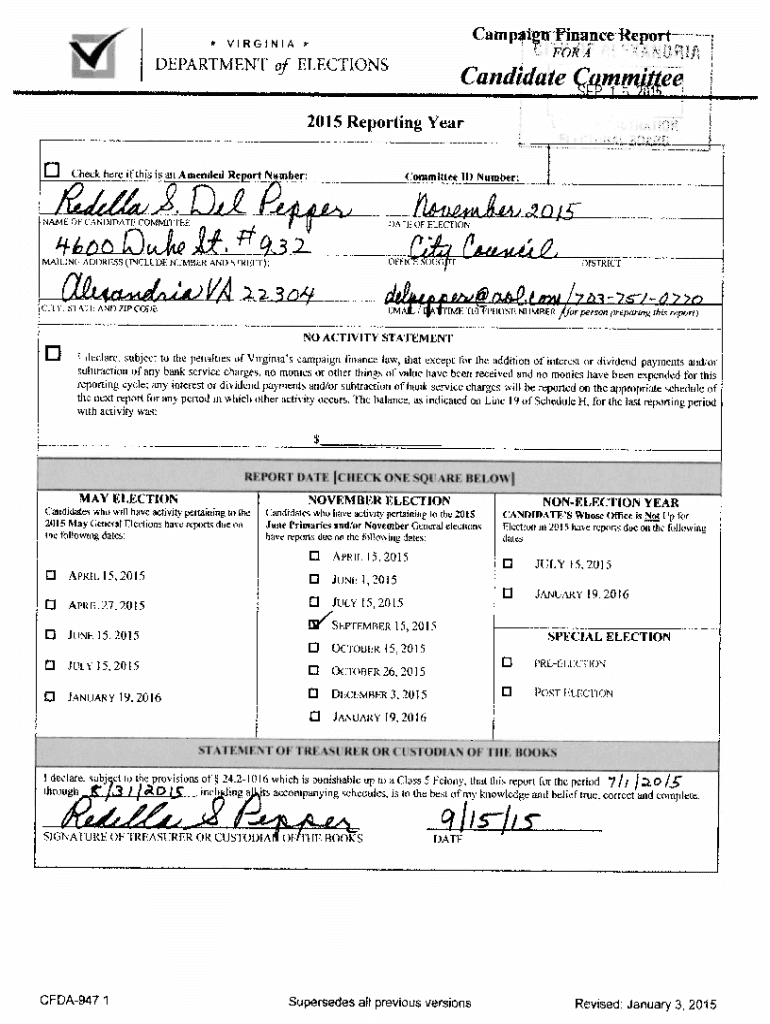 ★ VIRGINIA ★
DEPARTMENT of ELECTIONS
Campaign Finance Report
FOR A
Candidate Committee
SEP 15 2015
2015 Reporting Year
Check here if this is an Amended Report Number:
Committee ID Number:
Redella S. Del Pepper
November 2015
NAME OF CANDIDATE COMMITTEE
DATE OF ELECTION
4600 Duke St. #932
City Council
MAILING ADDRESS (INCLUDE NUMBER AND STREET):
OFFICE SOUGHT
DISTRICT
Alexandria VA 22304
delpepper@aol.com/703-751-0770
CITY, STATE AND ZIP CODE
EMAIL / DAYTIME TELEPHONE NUMBER (for person preparing this report)
NO ACTIVITY STATEMENT
I declare, subject to the penalties of Virginia's campaign finance law, that except for the addition of interest or dividend payments and/or
subtraction of any bank service charges, no monies or other things of value have been received and no monies have been expended for this
reporting cycle; any interest or dividend payments and/or subtraction of bank service charges will be reported on the appropriate schedule of
the next report for any period in which other activity occurs. The balance, as indicated on Line 19 of Schedule H, for the last reporting period
with activity was:
$
REPORT DATE [CHECK ONE SQUARE BELOW]
MAY ELECTION
Candidates who will have activity pertaining to the
2015 May General Elections have reports due on
the following dates:
APRIL 15, 2015
APRIL 27, 2015
JUNE 15, 2015
JULY 15, 2015
JANUARY 19, 2016
NOVEMBER ELECTION
Candidates who have activity pertaining to the 2015
June Primaries and/or November General elections
have reports due on the following dates:
APRIL 15, 2015
JUNE 1, 2015
JULY 15, 2015
SEPTEMBER 15, 2015
OCTOBER 15, 2015
OCTOBER 26, 2015
DECEMBER 3, 2015
JANUARY 19, 2016
NON-ELECTION YEAR
CANDIDATE'S Whose Office is Not Up for
Election in 2015 have reports due on the following
dates
JULY 15, 2015
JANUARY 19, 2016
SPECIAL ELECTION
PRE-ELECTION
POST ELECTION
STATEMENT OF TREASURER OR CUSTODIAN OF THE BOOKS
I declare, subject to the provisions of § 24.2-1016 which is punishable up to a Class 5 Felony, that this report for the period 7/1/2015
through 8/31/2015 including all its accompanying schedules, is to the best of my knowledge and belief true, correct and complete.
Redella S Pepper
9/15/15
SIGNATURE OF TREASURER OR CUSTODIAN OF THE BOOKS
DATE
CFDA-947 1
Supersedes all previous versions
Revised: January 3, 2015